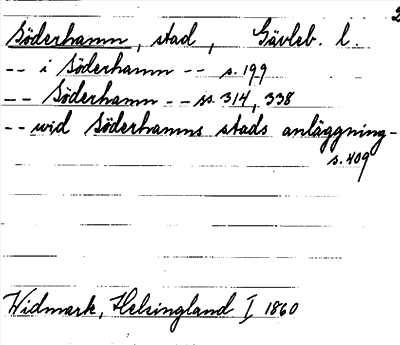 2
Söderhamn, stad, Gävleb. l.
-- i Söderhamn -- s. 199
-- Söderhamn -- ss. 314, 338
-- wid Söderhamns stads anläggning -
s. 409
Widmark, Helsingland I 1860